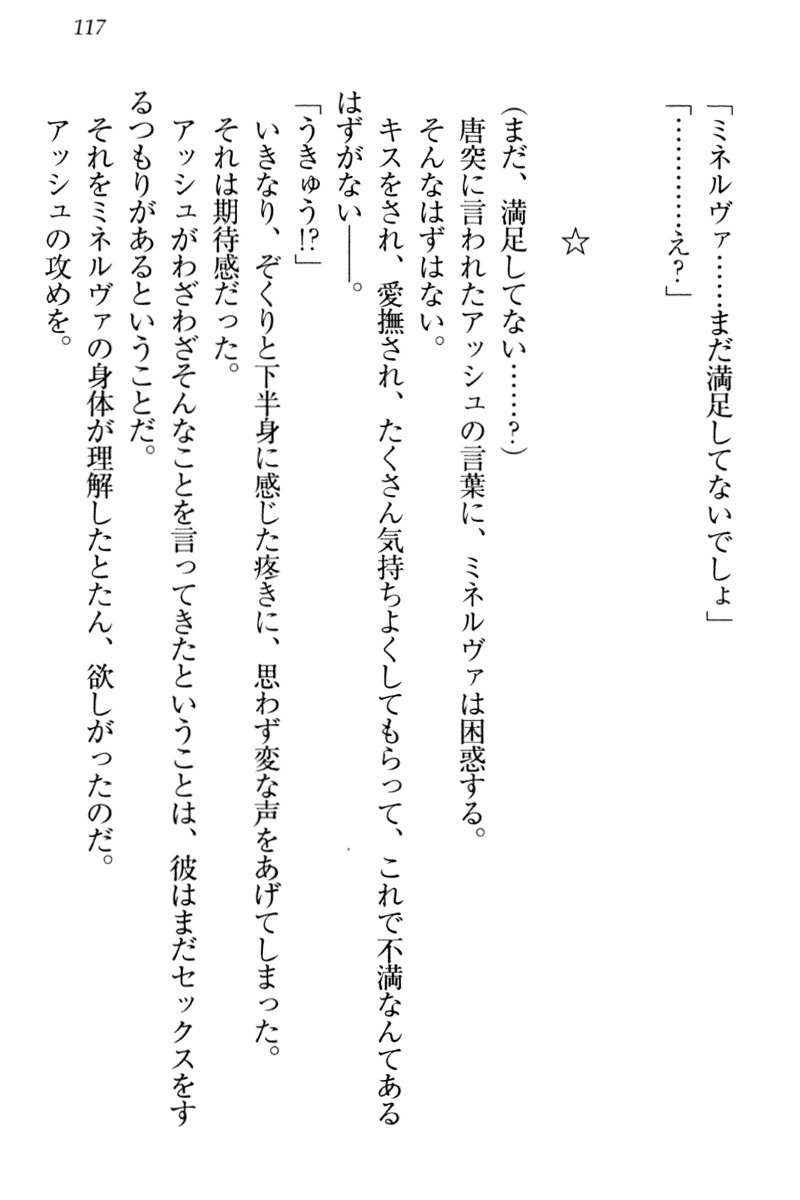 117
「ミネルヴァ……まだ満足してないでしょ」
「…………え？」
☆
(まだ、満足してない……？)
唐突に言われたアッシュの言葉に、ミネルヴァは困惑する。
そんなはずはない。
キスをされ、愛撫され、たくさん気持ちよくしてもらって、これで不満なんてある
はずがない――。
「うきゅう!?」
いきなり、ぞくりと下半身に感じた疼きに、思わず変な声をあげてしまった。
それは期待感だった。
アッシュがわざわざそんなことを言ってきたということは、彼はまだセックスをす
るつもりがあるということだ。
それをミネルヴァの身体が理解したとたん、欲しがったのだ。
アッシュの攻めを。